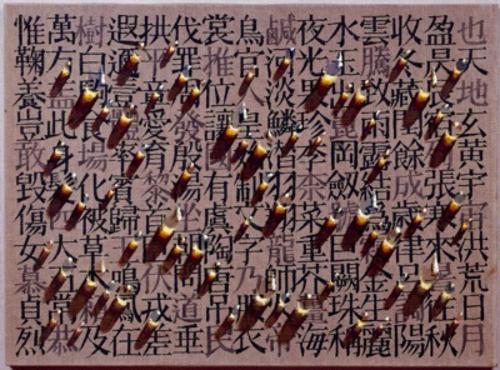 也天地玄黃宇宙洪荒日月
盈昃辰宿列張寒來暑往秋
收冬藏閏餘成歲律呂調陽
雲騰致雨露結爲霜金生麗
水玉出崑岡劒號巨闕珠稱
夜光果珍李柰菜重芥薑海
鹹河淡鱗潛羽翔龍師火帝
鳥官人皇始制文字乃服衣
裳推位讓國有虞陶唐吊民
伐罪周發殷湯坐朝問道垂
拱平章愛育黎首臣伏戎羌
遐邇壹體率賓歸王鳴鳳在
樹白駒食場化被草木賴及
萬方蓋此身髮四大五常恭
惟鞠養豈敢毀傷女慕貞烈